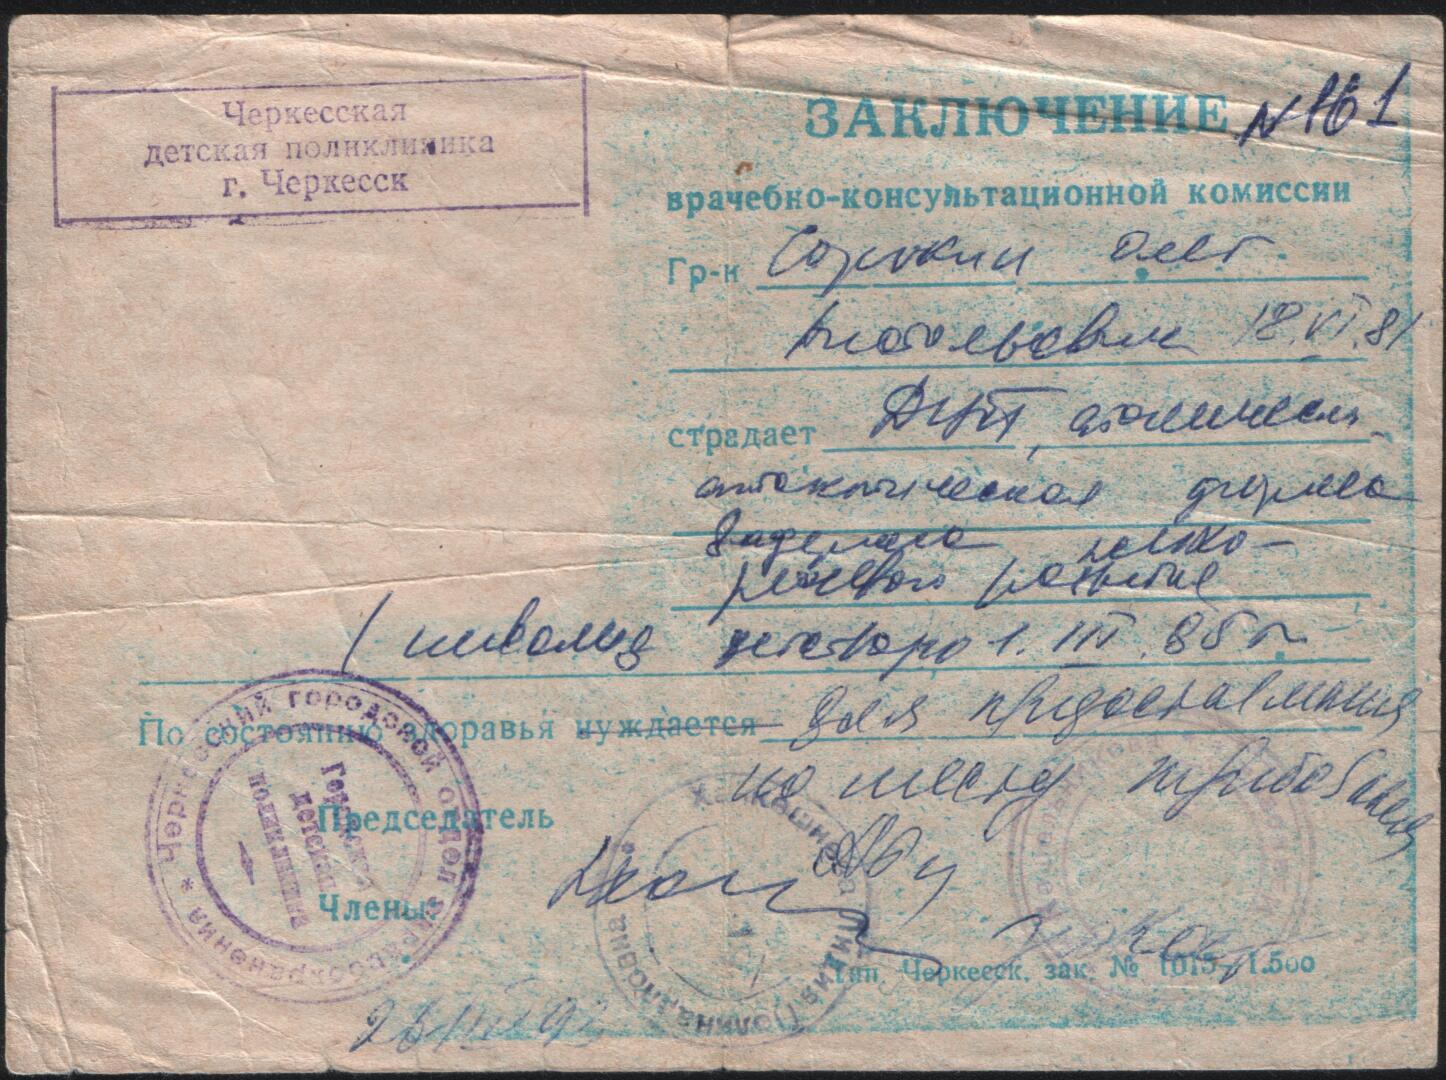 Черкесская
детская поликлиника
г. Черкесск
ЗАКЛЮЧЕНИЕ №161
врачебно-консультационной комиссии
Гр-н Сорокин Олег
18.VI.81
страдает ДЦП, атонически-
астатическая форма
Задержка психо-
речевого развития
инвалид детства до 1.III.95г.
По состоянию здоровья нуждается для предоставления
по месту требования
Председатель
Члены:
Черкесский городской отдел здравоохранения *
Городская
детская
поликлиника
Тип. Черкесск, зак. № 1015 1.500